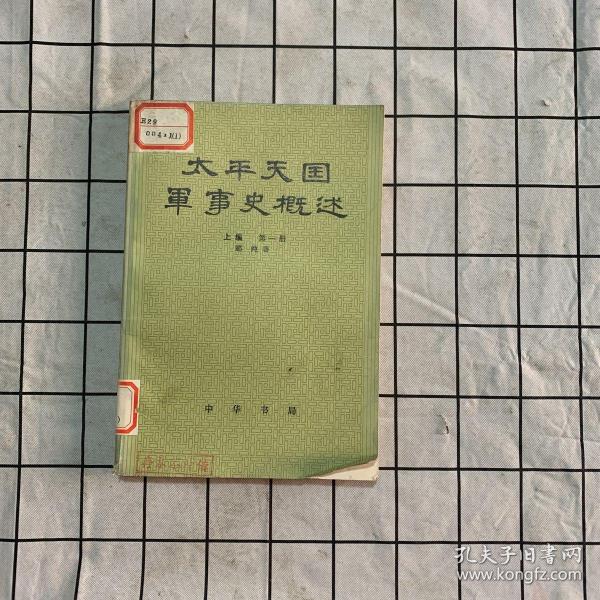 E29
004:1(1)
太平天囯
軍事史概述
上編 第一册
郦纯著
中华书局
)
孔夫子旧書网
www.kongfz.com